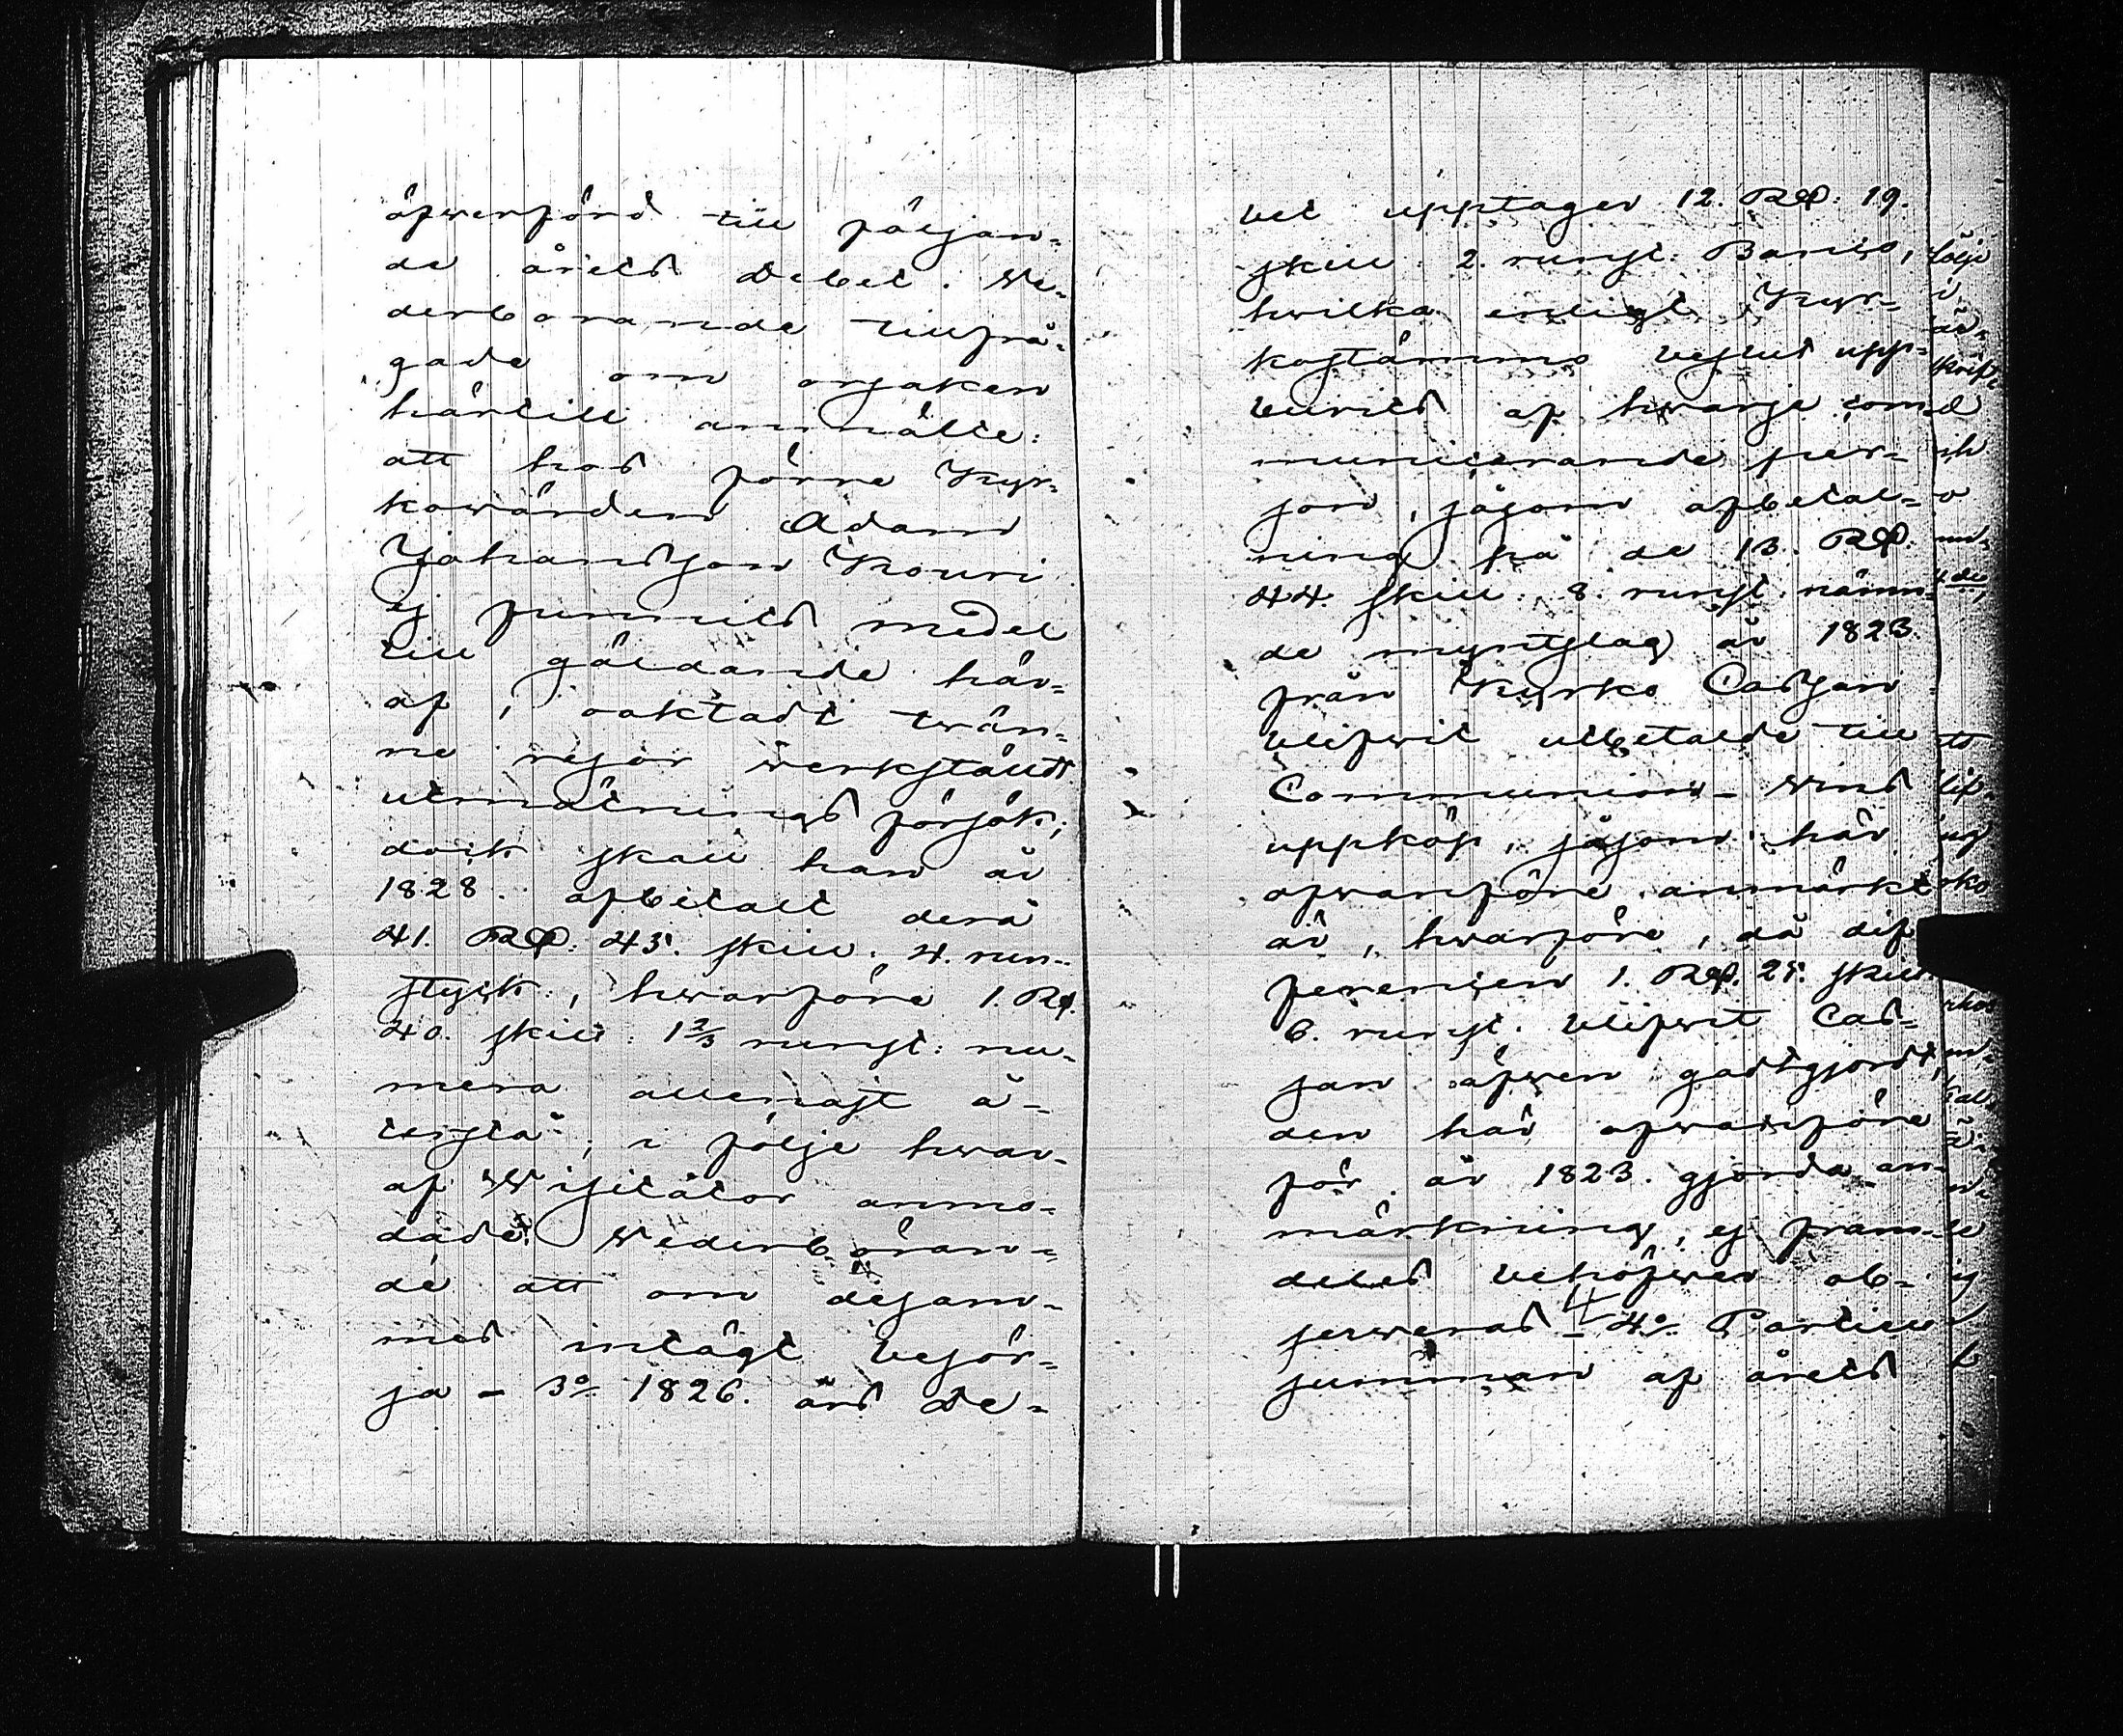 öfwerförd till följan-
de årets Debet. We-
derbörande tillfrå-
gade om orsaken
härtill anmälte:
att hos förre Kyr-
kowärden Adam
Johansson Kouri
ej funnits medel
till gäldande här-
af, oaktadt twän-
ne resor werkställdt
utmätnings försök;
dock skall han år
1828. afbetalt derå
41. RD. 45. skill. 4. run-
styck., hwarföre 1. RD.
40. skill: 1 2/3 runst: nu-
mera allenast å-
terstå; i följe hwar-
af Wisitator anmo-
dade Wederböran-
de att om desam-
mas intägt besör-
ja - 3o 1826. års De-
bet upptager 12. RD. 19.
skill 2. runst: Banco,
hwilka enligt Kyr-
kostämmo beslut upp-
burits af hwarje com-
municerande per-
son, såsom afbetal-
ning på de 13. RD.
44. skill. 8. runst. nämn-
de myntslag år 1823
från Kyrko Cassan
blifwit utbetalde till
Communion-wins
uppköp, såsom här
ofwanföre anmärkt
är, hwarföre, då dif-
ferencen 1. RD. 25. skill
6. runst. blifwit Cas-
san äfwen godtgjordt,
den här ofwanföre
för år 1823. gjorda an-
märkning, ej fram-
deles behöfwer ob-
serweras - 4o. Partiell
summan af årets